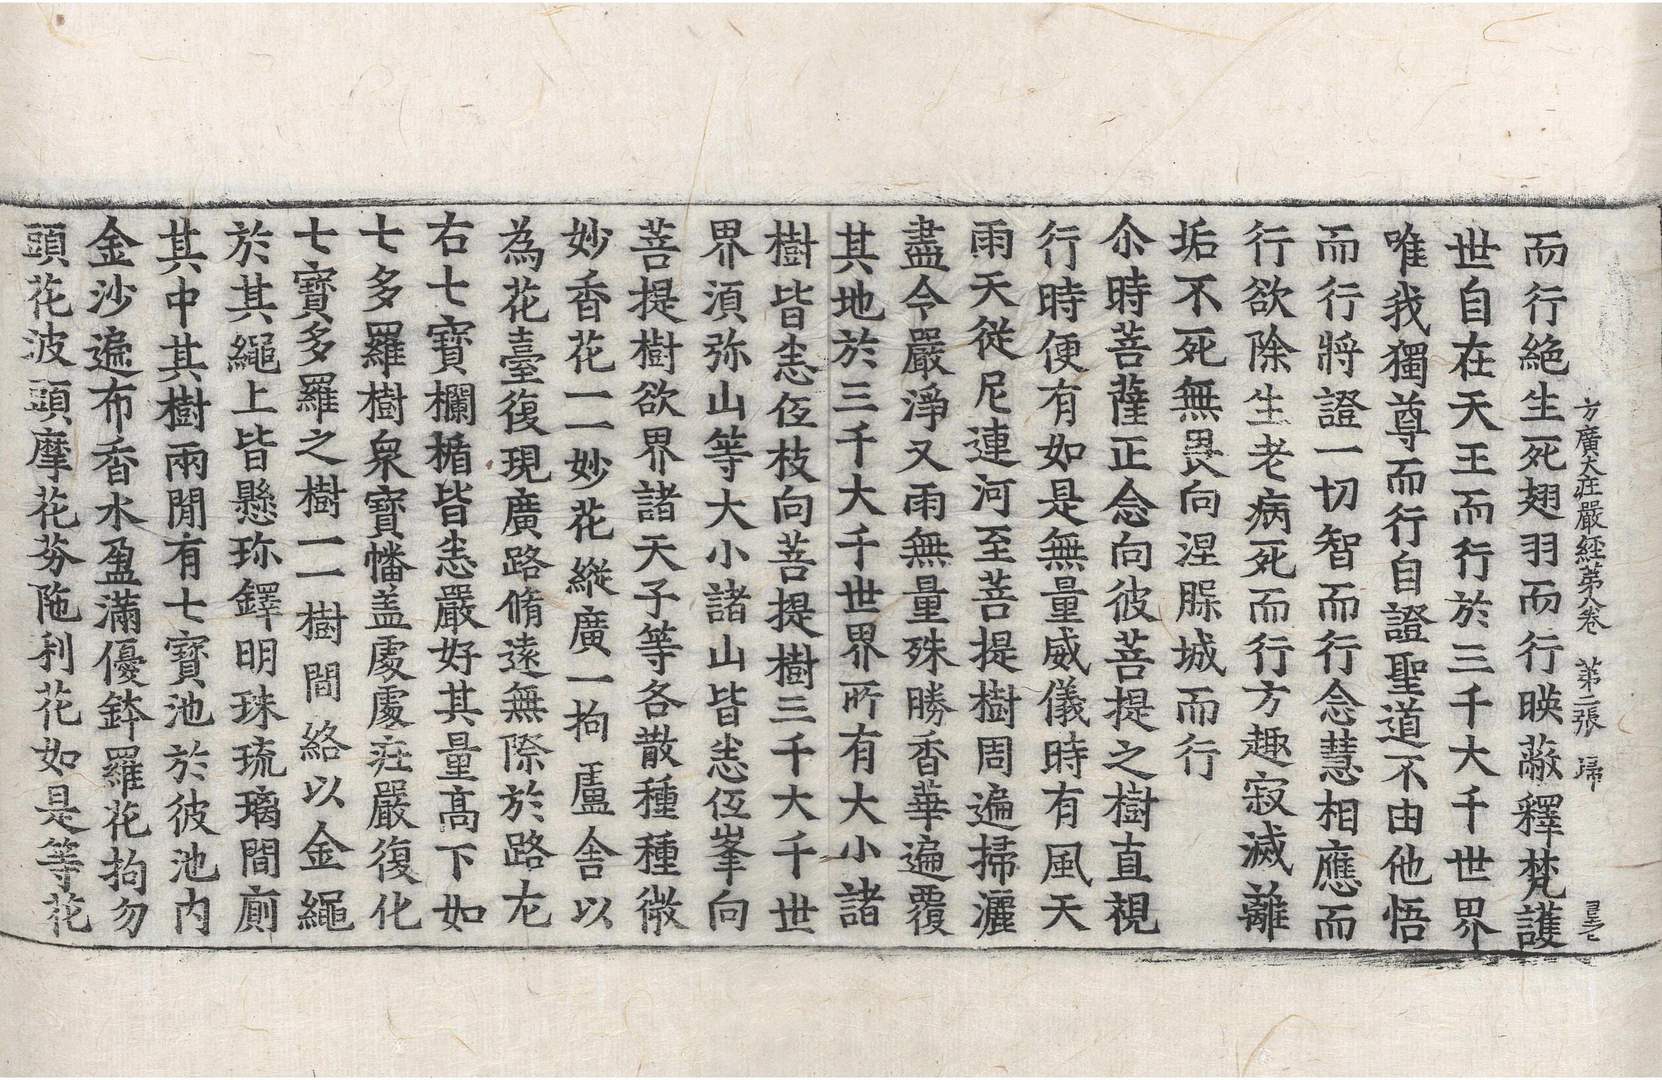 方廣大莊嚴經第八卷 第二張 歸
而行絶生死翅羽而行暎蔽釋梵護
世自在天王而行於三千大千世界
唯我獨尊而行自證聖道不由他悟
而行將證一切智而行念慧相應而
行欲除生老病死而行方趣寂滅離
垢不死無畏向涅槃城而行
尒時菩薩正念向彼菩提之樹直視
行時便有如是無量威儀時有風天
雨天從尼連河至菩提樹周遍掃灑
盡令嚴淨又雨無量殊勝香華遍覆
其地於三千大千世界所有大小諸
樹皆悉低枝向菩提樹三千大千世
界湏弥山等大小諸山皆悉低峯向
菩提樹欲界諸天子等各散種種微
妙香花一一妙花縱廣一拘盧舍以
為花臺復現廣路脩遠無際於路左
右七寶欄楯皆悉嚴好其量高下如
七多羅樹衆寶幡盖處處莊嚴復化
七寶多羅之樹一一樹間絡以金繩
於其繩上皆懸珎鐸明珠琉璃間廁
其中其樹兩閒有七寶池於彼池内
金沙遍布香水盈滿優鉢羅花拘勿
頭花波頭摩花芬陁利花如是等花